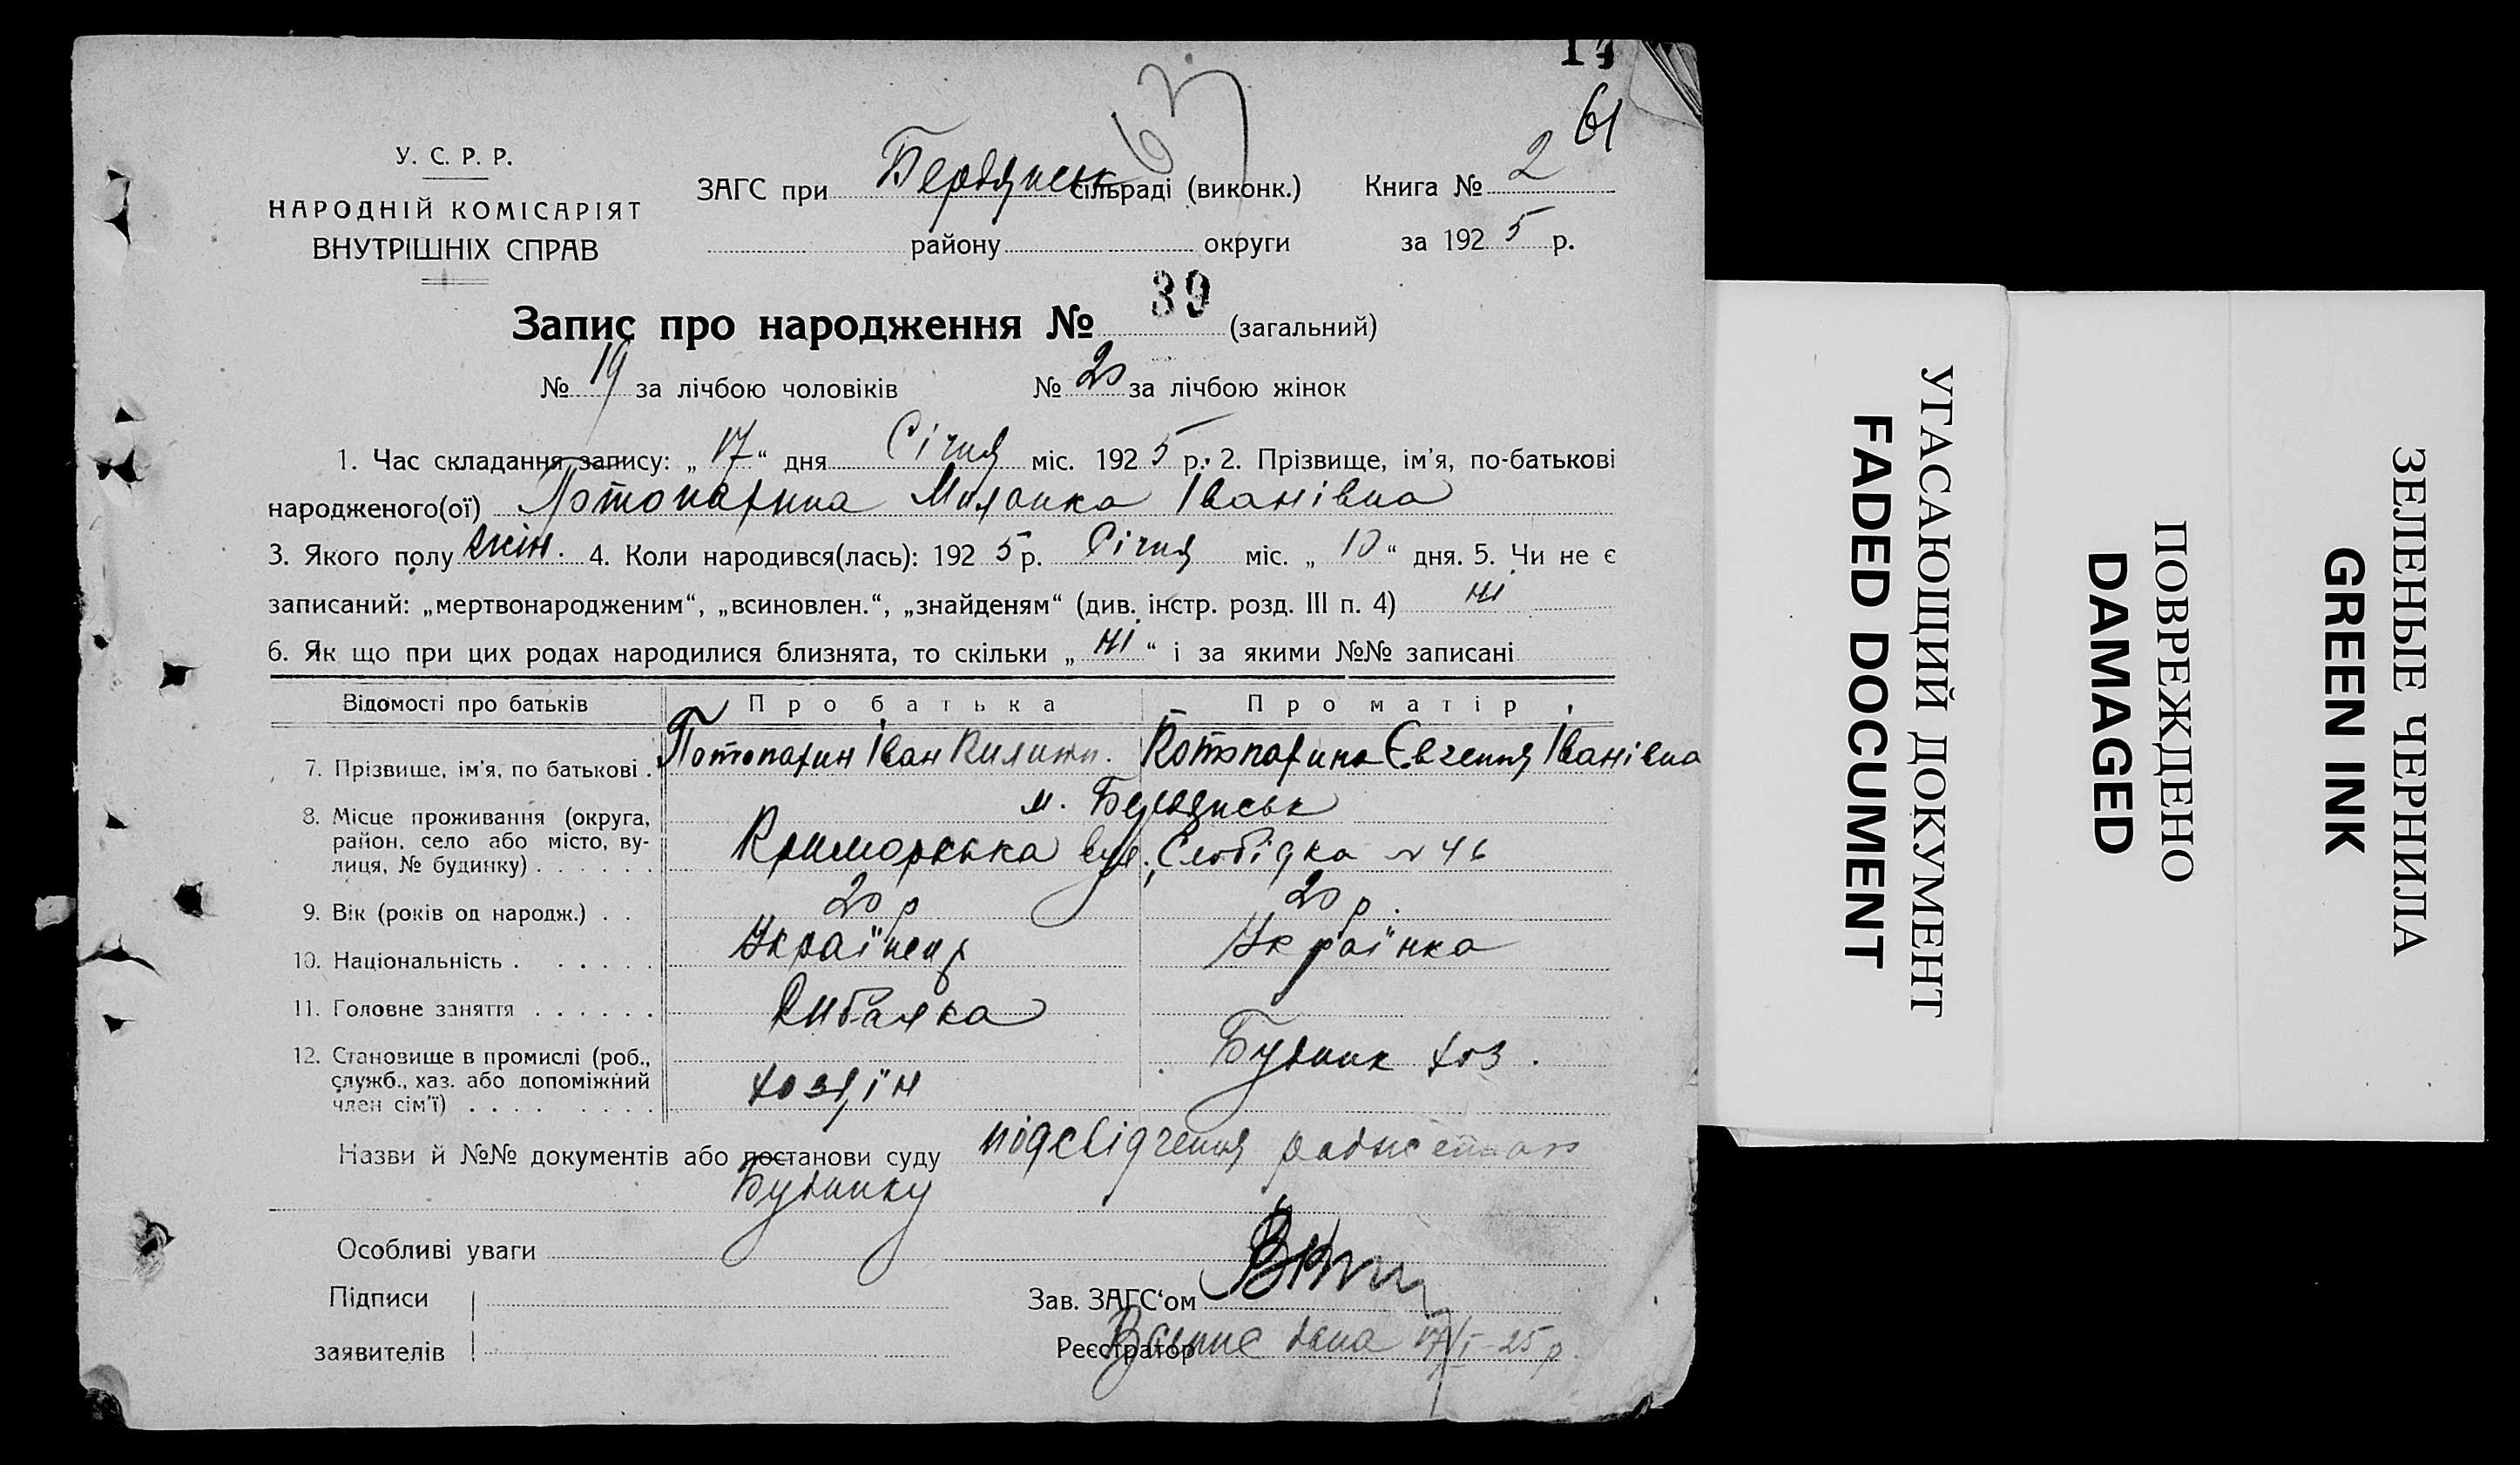 61
У. С. Р. Р.
НАРОДНІЙ КОМІСАРІЯТ
ВНУТРІШНІХ СПРАВ
ЗАГС при Бердянськ сільраді (виконк.) Книга № 2
району округи за 1925 р.
Запис про народження № 39 (загальний)
№ 19 за лічбою чоловіків № 20 за лічбою жінок
1. Час складання запису: „17“ дня Січня міс. 1925 р. 2. Прізвище, ім’я, по-батькові
народженого(ої) Іванівна
3. Якого полу жін. 4. Коли народився(лась): 1925 р. Січня міс. „10“ дня. 5. Чи не є
записаний: „мертвонародженим“, „всиновлен.“, „знайденям“ (див. інстр. розд. III п. 4) ні
6. Як що при цих родах народилися близнята, то скільки „ні“ і за якими №№ записані
Відомості про батьків Про батька Про матір
7. Прізвище, ім’я, по батькові . Іван Євгенія Іванівна
м. Бердянськ
8. Місце проживання (округа,
район, село або місто, ву-
лиця, № будинку) . . . . . . Приморська вул. Слобідка № 46
9. Вік (років од народж.) . . 20 р 20 р.
10. Національність . . . . . . Українець Українка
11. Головне заняття . . . . . . Рибалка
12. Становище в промислі (роб.,
служб., хаз. або допоміжний
член сім’ї) . . . . . . . . хозяїн Будинк хоз.
Назви й №№ документів або постанови суду підсвідчення
Будинку
Особливі уваги
Підписи
заявителів
Зав. ЗАГС‘ом
Реєстратор дана 17/I-25 р.
УГАСАЮЩИЙ ДОКУМЕНТ
FADED DOCUMENT
ПОВРЕЖДЕНО
DAMAGED
ЗЕЛЕНЫЕ ЧЕРНИЛА
GREEN INK